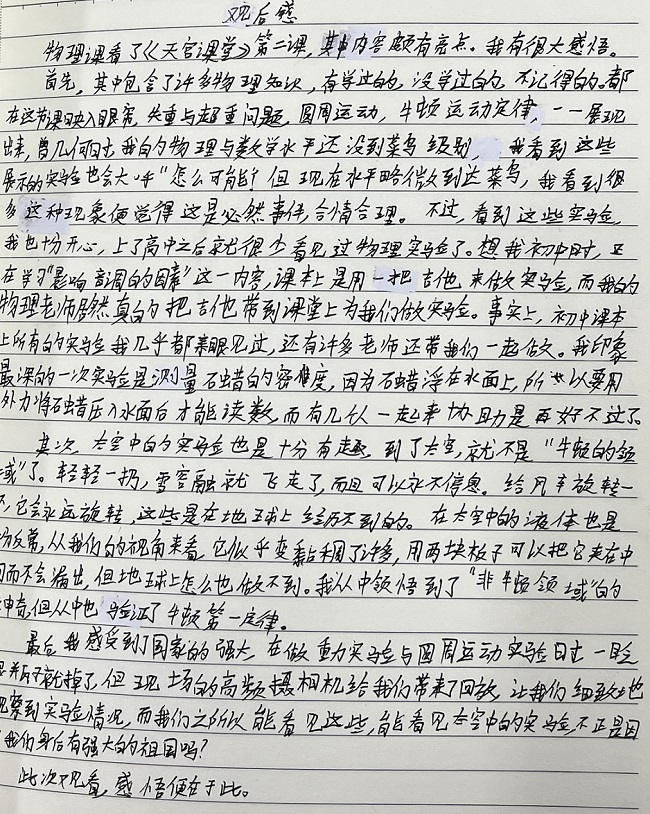 观后感
物理课看了《天宫课堂》第二课，其中内容颇有亮点。我有很大感悟。
首先，其中包含了许多物理知识，有学过的，没学过的，不记得的。都
在这节课映入眼帘，失重与超重问题，圆周运动，牛顿运动定律，一一展现
出来，曾几何时我的物理与数学水平还没到菜鸟级别，我看到这些
展示的实验也会大呼"怎么可能"！但现在水平略微到达菜鸟，我看到很
多这种现象便觉得这是必然事件，合情合理。不过，看到这些实验，
我也十分开心，上了高中之后就很少看见过物理实验了。想我初中时，正
在学习"影响音调的因素"这一内容，课本上是用一把吉他来做实验，而我的
物理老师居然真的把吉他带到课堂上为我们做实验。事实上，初中课本
上所有的实验我几乎都亲眼见过，还有许多老师还带我们一起做。我印象
最深的一次实验是测量石蜡的密度，因为石蜡浮在水面上，所以要用
外力将石蜡压入水面后才能读数，而有几人一起来协助是再好不过了。
其次，太空中的实验也是十分有趣，到了太空，就不是"牛顿的领
域"了。轻轻一扔，雪容融就飞走了，而且可以永不停息。给风车旋转一
下，它会永远旋转，这些是在地球上经历不到的。在太空中的液体也是
分反常，从我们的视角来看，它似乎变黏稠了许多，用两块板子可以把它夹在中
间而不会漏出，但地球上怎么也做不到。我从中领悟到了"非牛顿领域"的
神奇，但从中也验证了牛顿第一定律。
最后，我感受到了国家的强大，在做重力实验与圆周运动实验时一眨
眼就掉了，但现场的高频摄相机给我们带来了回放，让我们细致地
观察到实验情况，而我们之所以能看见这些，能看见太空中的实验，不正是因
我们身后有强大的祖国吗？
此次观看，感悟便在于此。